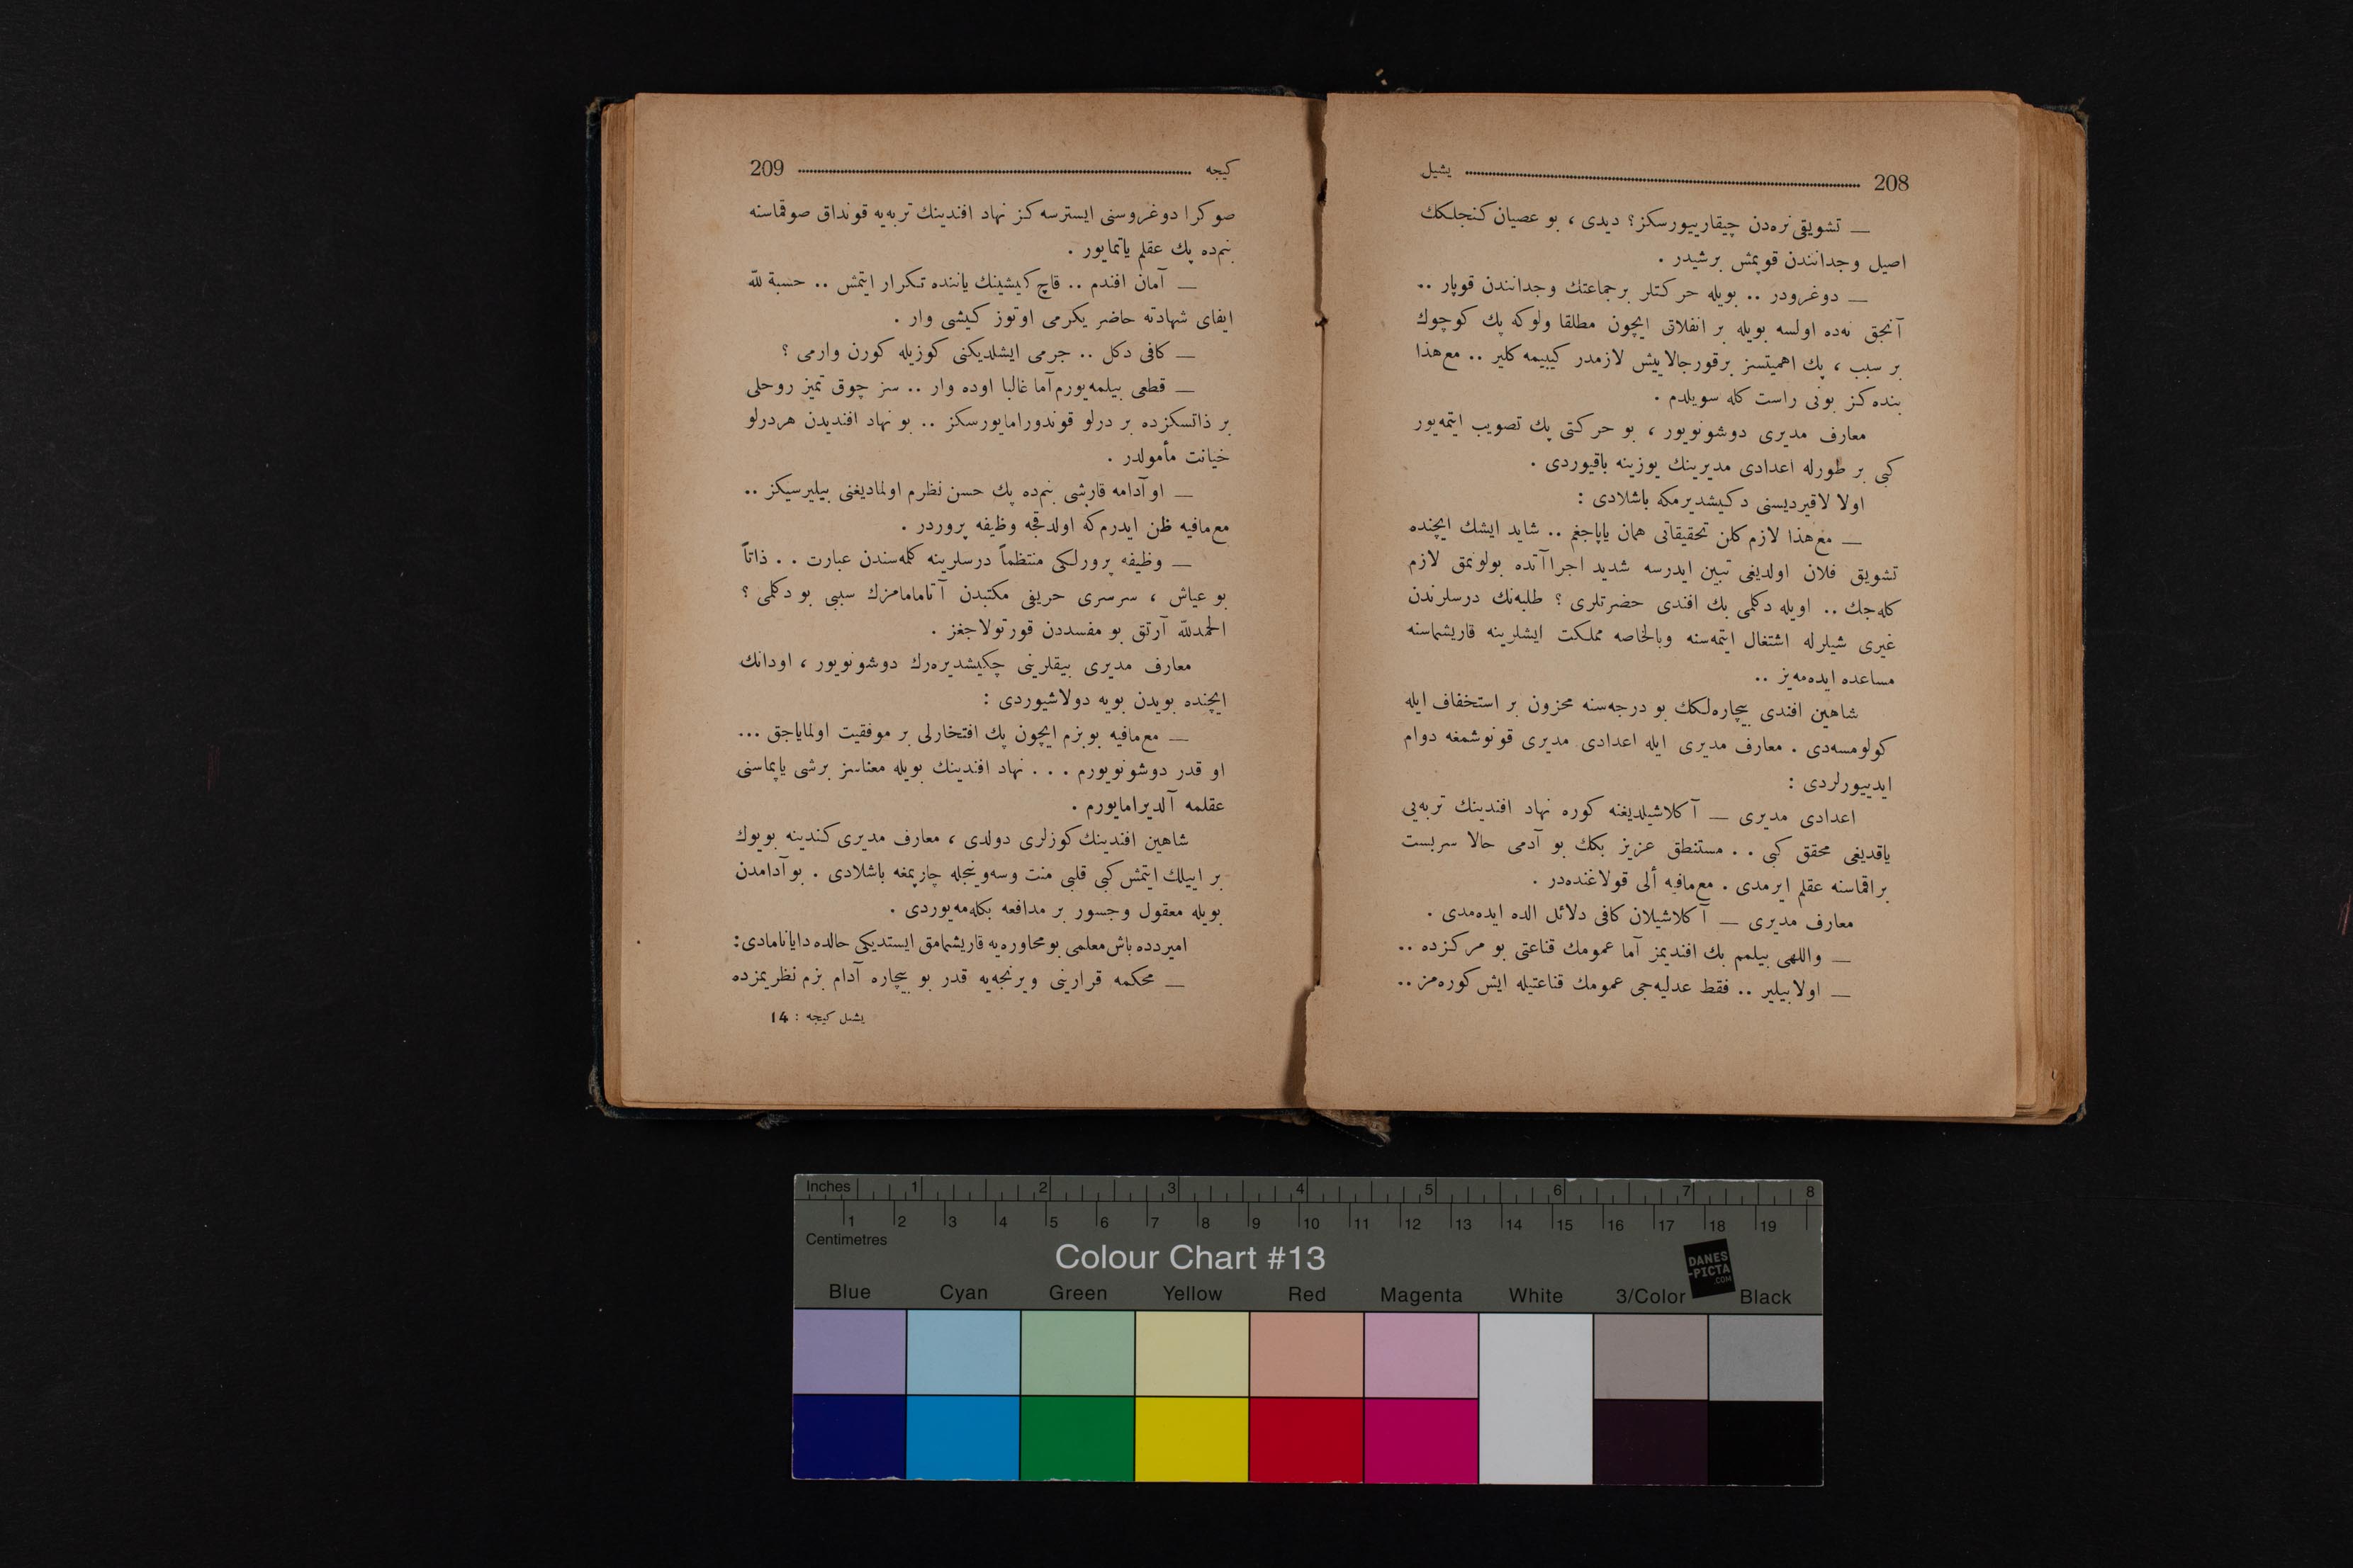 208 یشیل
— تشویقی نره‌دن چیقارییورسکز؟ دیدی ، بو عصیان کنجلکك
اصیل وجدانندن قوپمش برشیدر .
— دوغرودر .. بویله حرکتلر برجماعتك وجدانندن قوپار ..
آنجق نه‌ده اولسه بویله بر انفلاق ایچون مطلقا ولوکه پك کوچوك
بر سبب ، پك اهمیتسز برقورجالاییش لازمدر کیبیمه کلیر .. مع‌هذا
بنده‌کز بونی راست کله سویلدم .
معارف مدیری دوشونویور ، بو حرکتی پك تصویب ایتمه‌یور
کبی بر طورله اعدادی مدیرینك یوزینه باقیوردی .
اولا لاقیردیسنی دکیشدیرمکه باشلادی :
— مع‌هذا لازم کلن تحقیقاتی همان یاپاجغم .. شاید ایشك ایچنده
تشویق فلان اولدیغی تبین ایدرسه شدید اجراآتده بولونمق لازم
کله‌جك .. اویله دکلمی بك افندی حضرتلری ؟ طلبه‌نك درسلرندن
غیری شیلرله اشتغال ایتمه‌سنه وبالخاصه مملکت ایشلرینه قاریشماسنه
مساعده ایده‌مه‌یز ..
شاهین افندی بیچاره‌لکك بو درجه‌سنه محزون بر استخفاف ایله
کولومسه‌دی . معارف مدیری ایله اعدادی مدیری قونوشمغه دوام
ایدییورلردی :
اعدادی مدیری — آکلاشیلدیغنه کوره نهاد افندینك تربه‌یی
یاقدیغی محقق کبی . . مستنطق عزیز بکك بو آدمی حالا سربست
براقماسنه عقلم ایرمدی . مع‌مافیه ألی قولاغنده‌در .
معارف مدیری — آکلاشیلان کافی دلائل الده ایده‌مدی .
— واللهی بیلمم بك افندیمز آما عمومك قناعتی بو مرکزده ..
— اولابیلیر .. فقط عدلیه‌جی عمومك قناعتیله ایش کوره‌مز ..
کیجه 209
صوکرا دوغروسنی ایسترسه‌کز نهاد افندینك تربه‌یه قونداق صوقماسنه
بنم‌ده پك عقلم یاتمایور .
— آمان افندم .. قاچ کیشینك یاننده تکرار ایتمش .. حسبة لله
ایفای شهادته حاضر یکرمی اوتوز کیشی وار .
— کافی دکل .. جرمی ایشلدیکنی کوزیله کورن وارمی ؟
— قطعی بیلمه‌یورم آما غالبا اوده وار .. سز چوق تمیز روحلی
بر ذاتسکزده بر درلو قوندورامایورسکز .. بو نهاد افندیدن هردرلو
خیانت مأمولدر .
— او آدامه قارشی بنم‌ده پك حسن نظرم اولمادیغنی بیلیرسیکز ..
مع‌مافیه ظن ایدرم‌که اولدقجه وظیفه پروردر .
— وظیفه پرورلکی منتظماً درسلرینه کلمه‌سندن عبارت . . ذاتاً
بو عیاش ، سرسری حریفی مکتبدن آتامامامزك سببی بو دکلمی ؟
الحمدلله آرتق بو مفسددن قورتولاجغز .
معارف مدیری بیقلرینی چکیشدیره‌رك دوشونویور ، اودانك
ایچنده بویدن بویه دولاشیوردی :
— مع‌مافیه بوبزم ایچون پك افتخارلی بر موفقیت اولمایاجق ...
او قدر دوشونویورم . . . نهاد افندینك بویله معناسز برشی یاپماسنی
عقلمه آلدیرامایورم .
شاهین افندینك کوزلری دولدی ، معارف مدیری کندینه بویوك
بر اییلك ایتمش کبی قلبی منت وسه‌وینجله چارپمغه باشلادی . بو آدامدن
بویله معقول وجسور بر مدافعه بکله‌مه‌یوردی .
امیردده باش معلمی بو محاوره‌یه قاریشمامق ایستدیکی حالده دایانامادی :
— محکمه قرارینی ویرنجه‌یه قدر بو بیچاره آدام بزم نظریمزده
یشیل کیجه : 14
Inches 1 2 3 4 5 6 7 8
1 2 3 4 5 6 7 8 9 10 11 12 13 14 15 16 17 18 19
Centimetres
Colour Chart #13
DANES
-PICTA
.COM
Blue Cyan Green Yellow Red Magenta White 3/Color Black